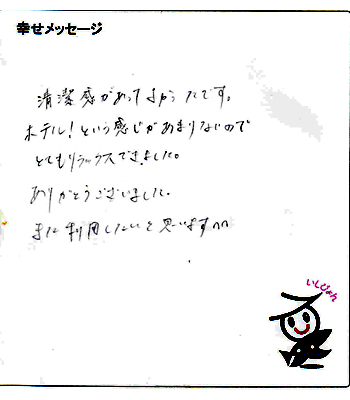 幸せメッセージ
清潔感があってよかったです。
ホテル!という感じがあまりないので
とてもリラックスできました。
ありがとうございました。
また利用したいと思います^^
いしぴょん